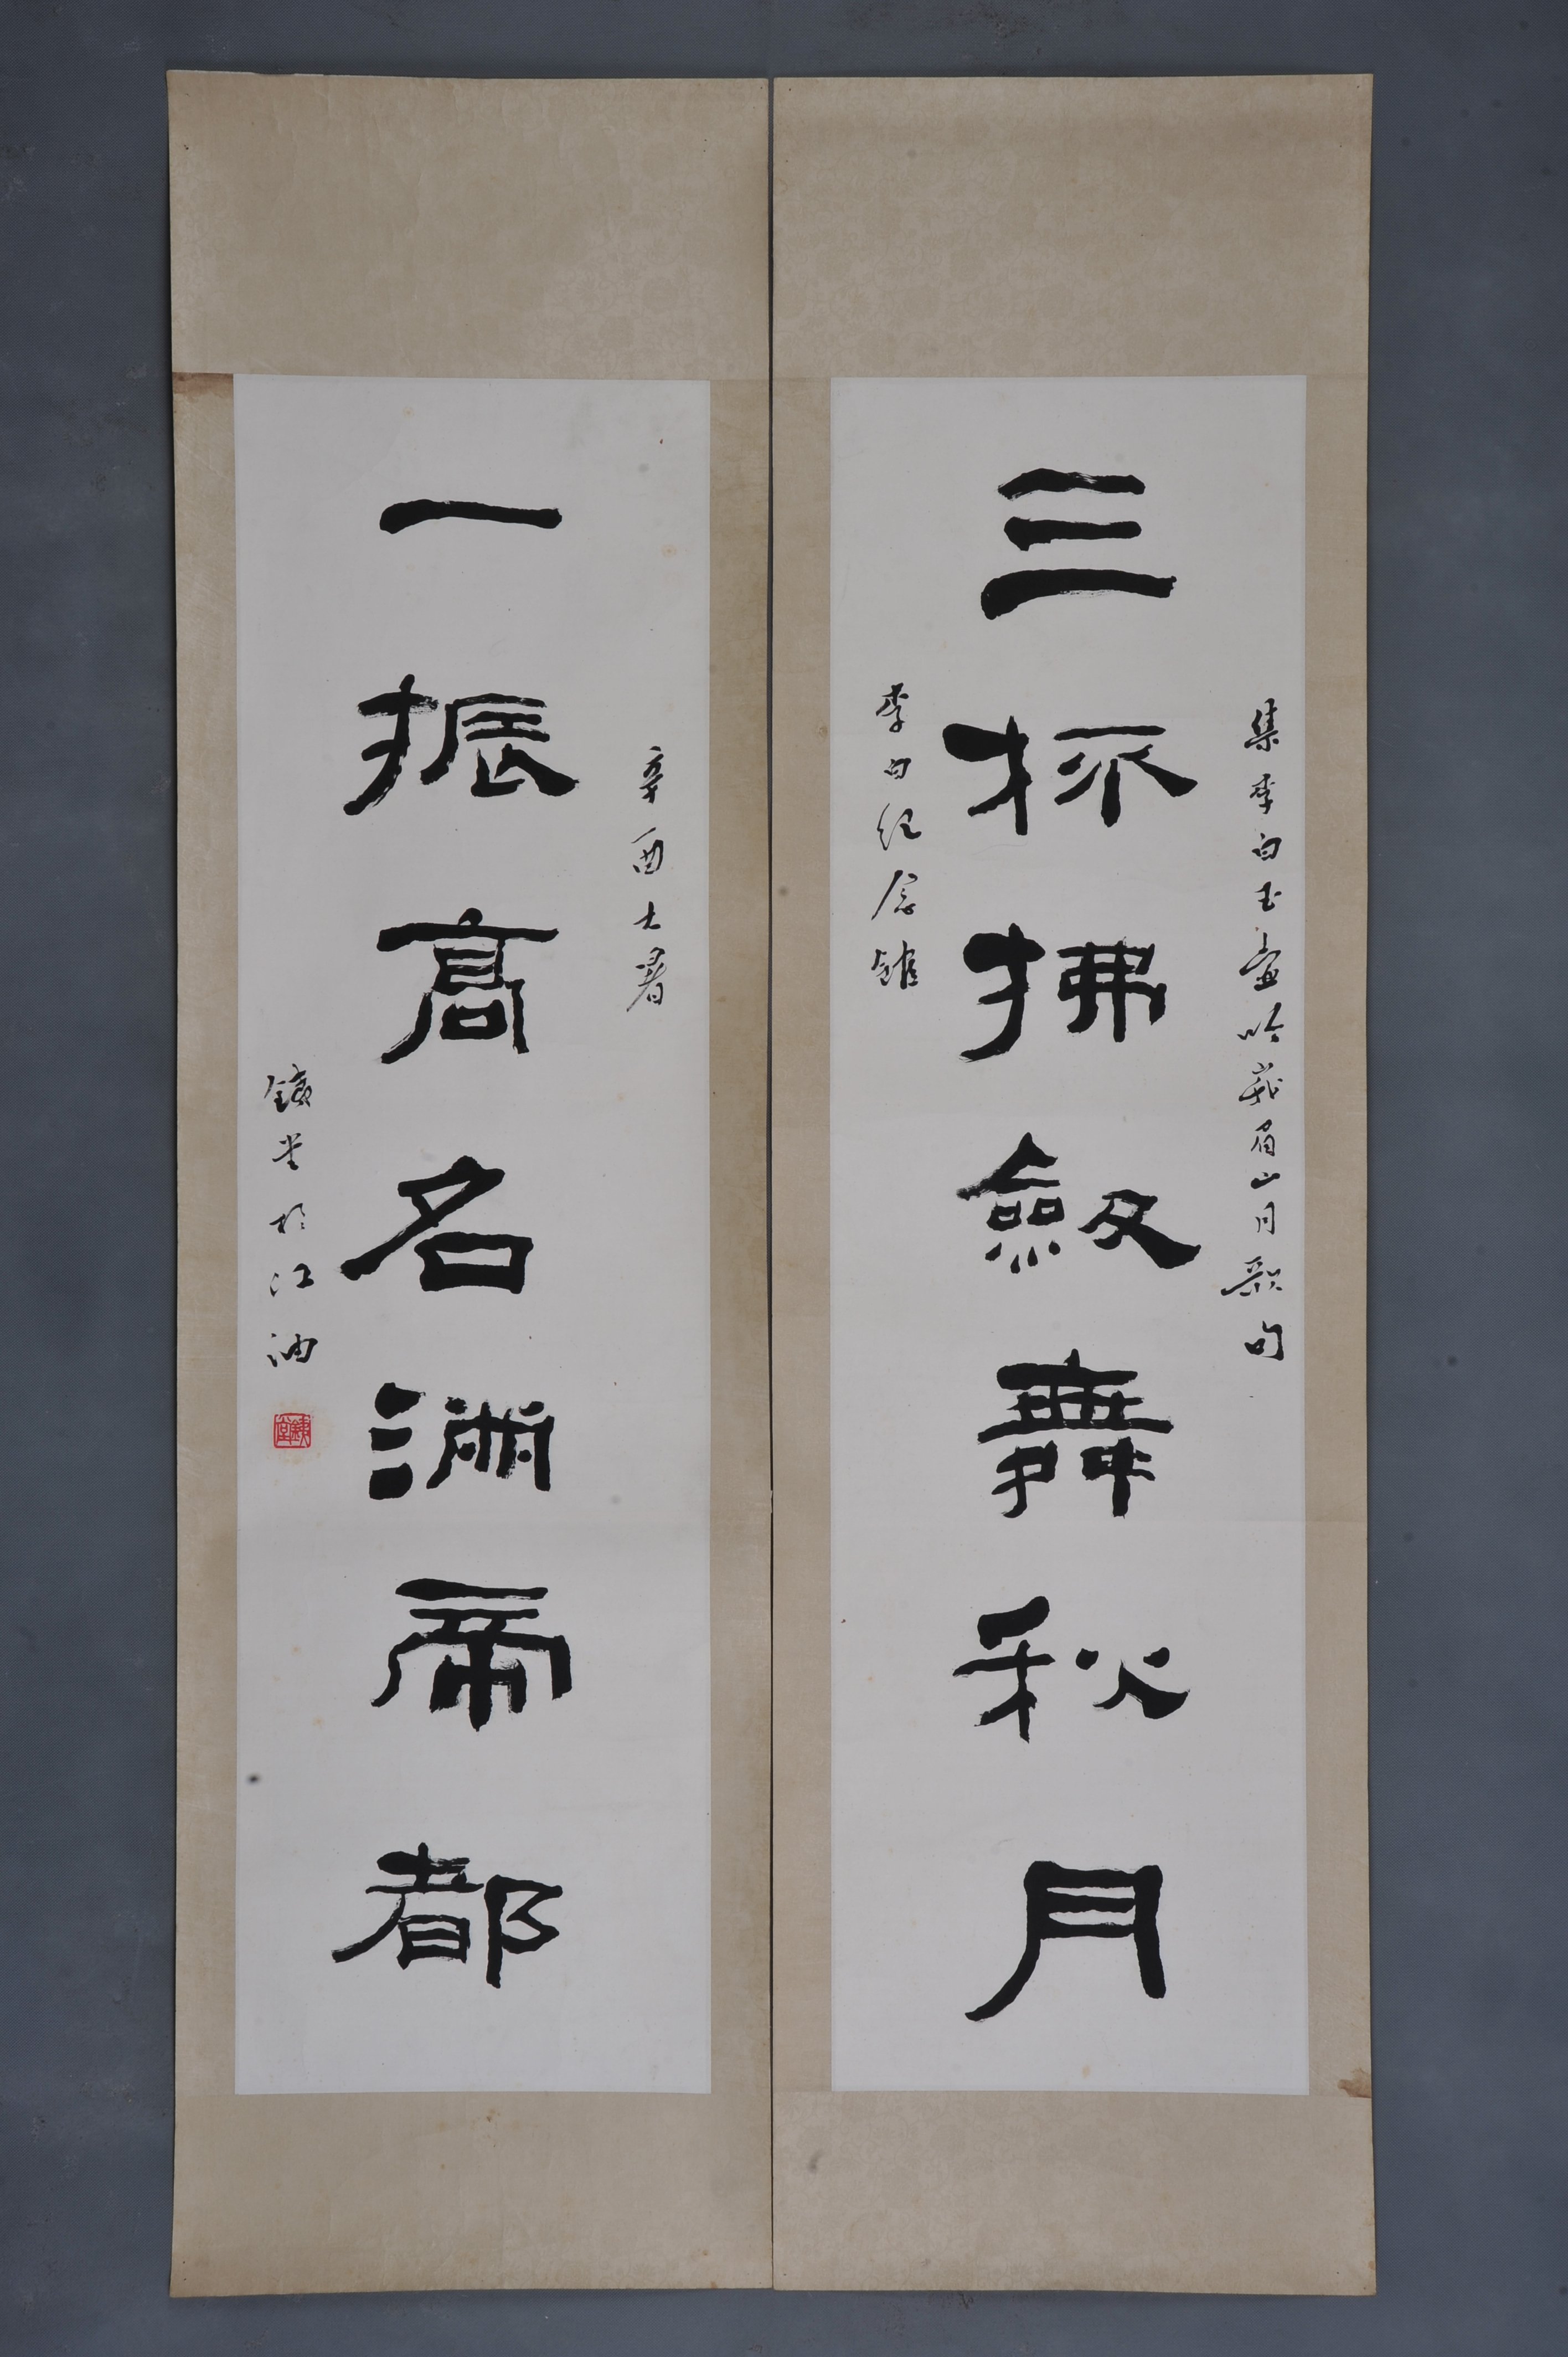 集李白玉壺吟峨眉山月歌句
三杯拂劔舞秋月
李白纪念馆
辛酉大暑
一振高名滿帝都
鐵堂於江油
鐵堂